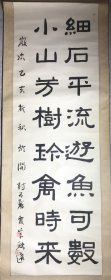 細石平流遊魚可數
小山芳樹珍禽時來
歲次乙亥新秋於開封